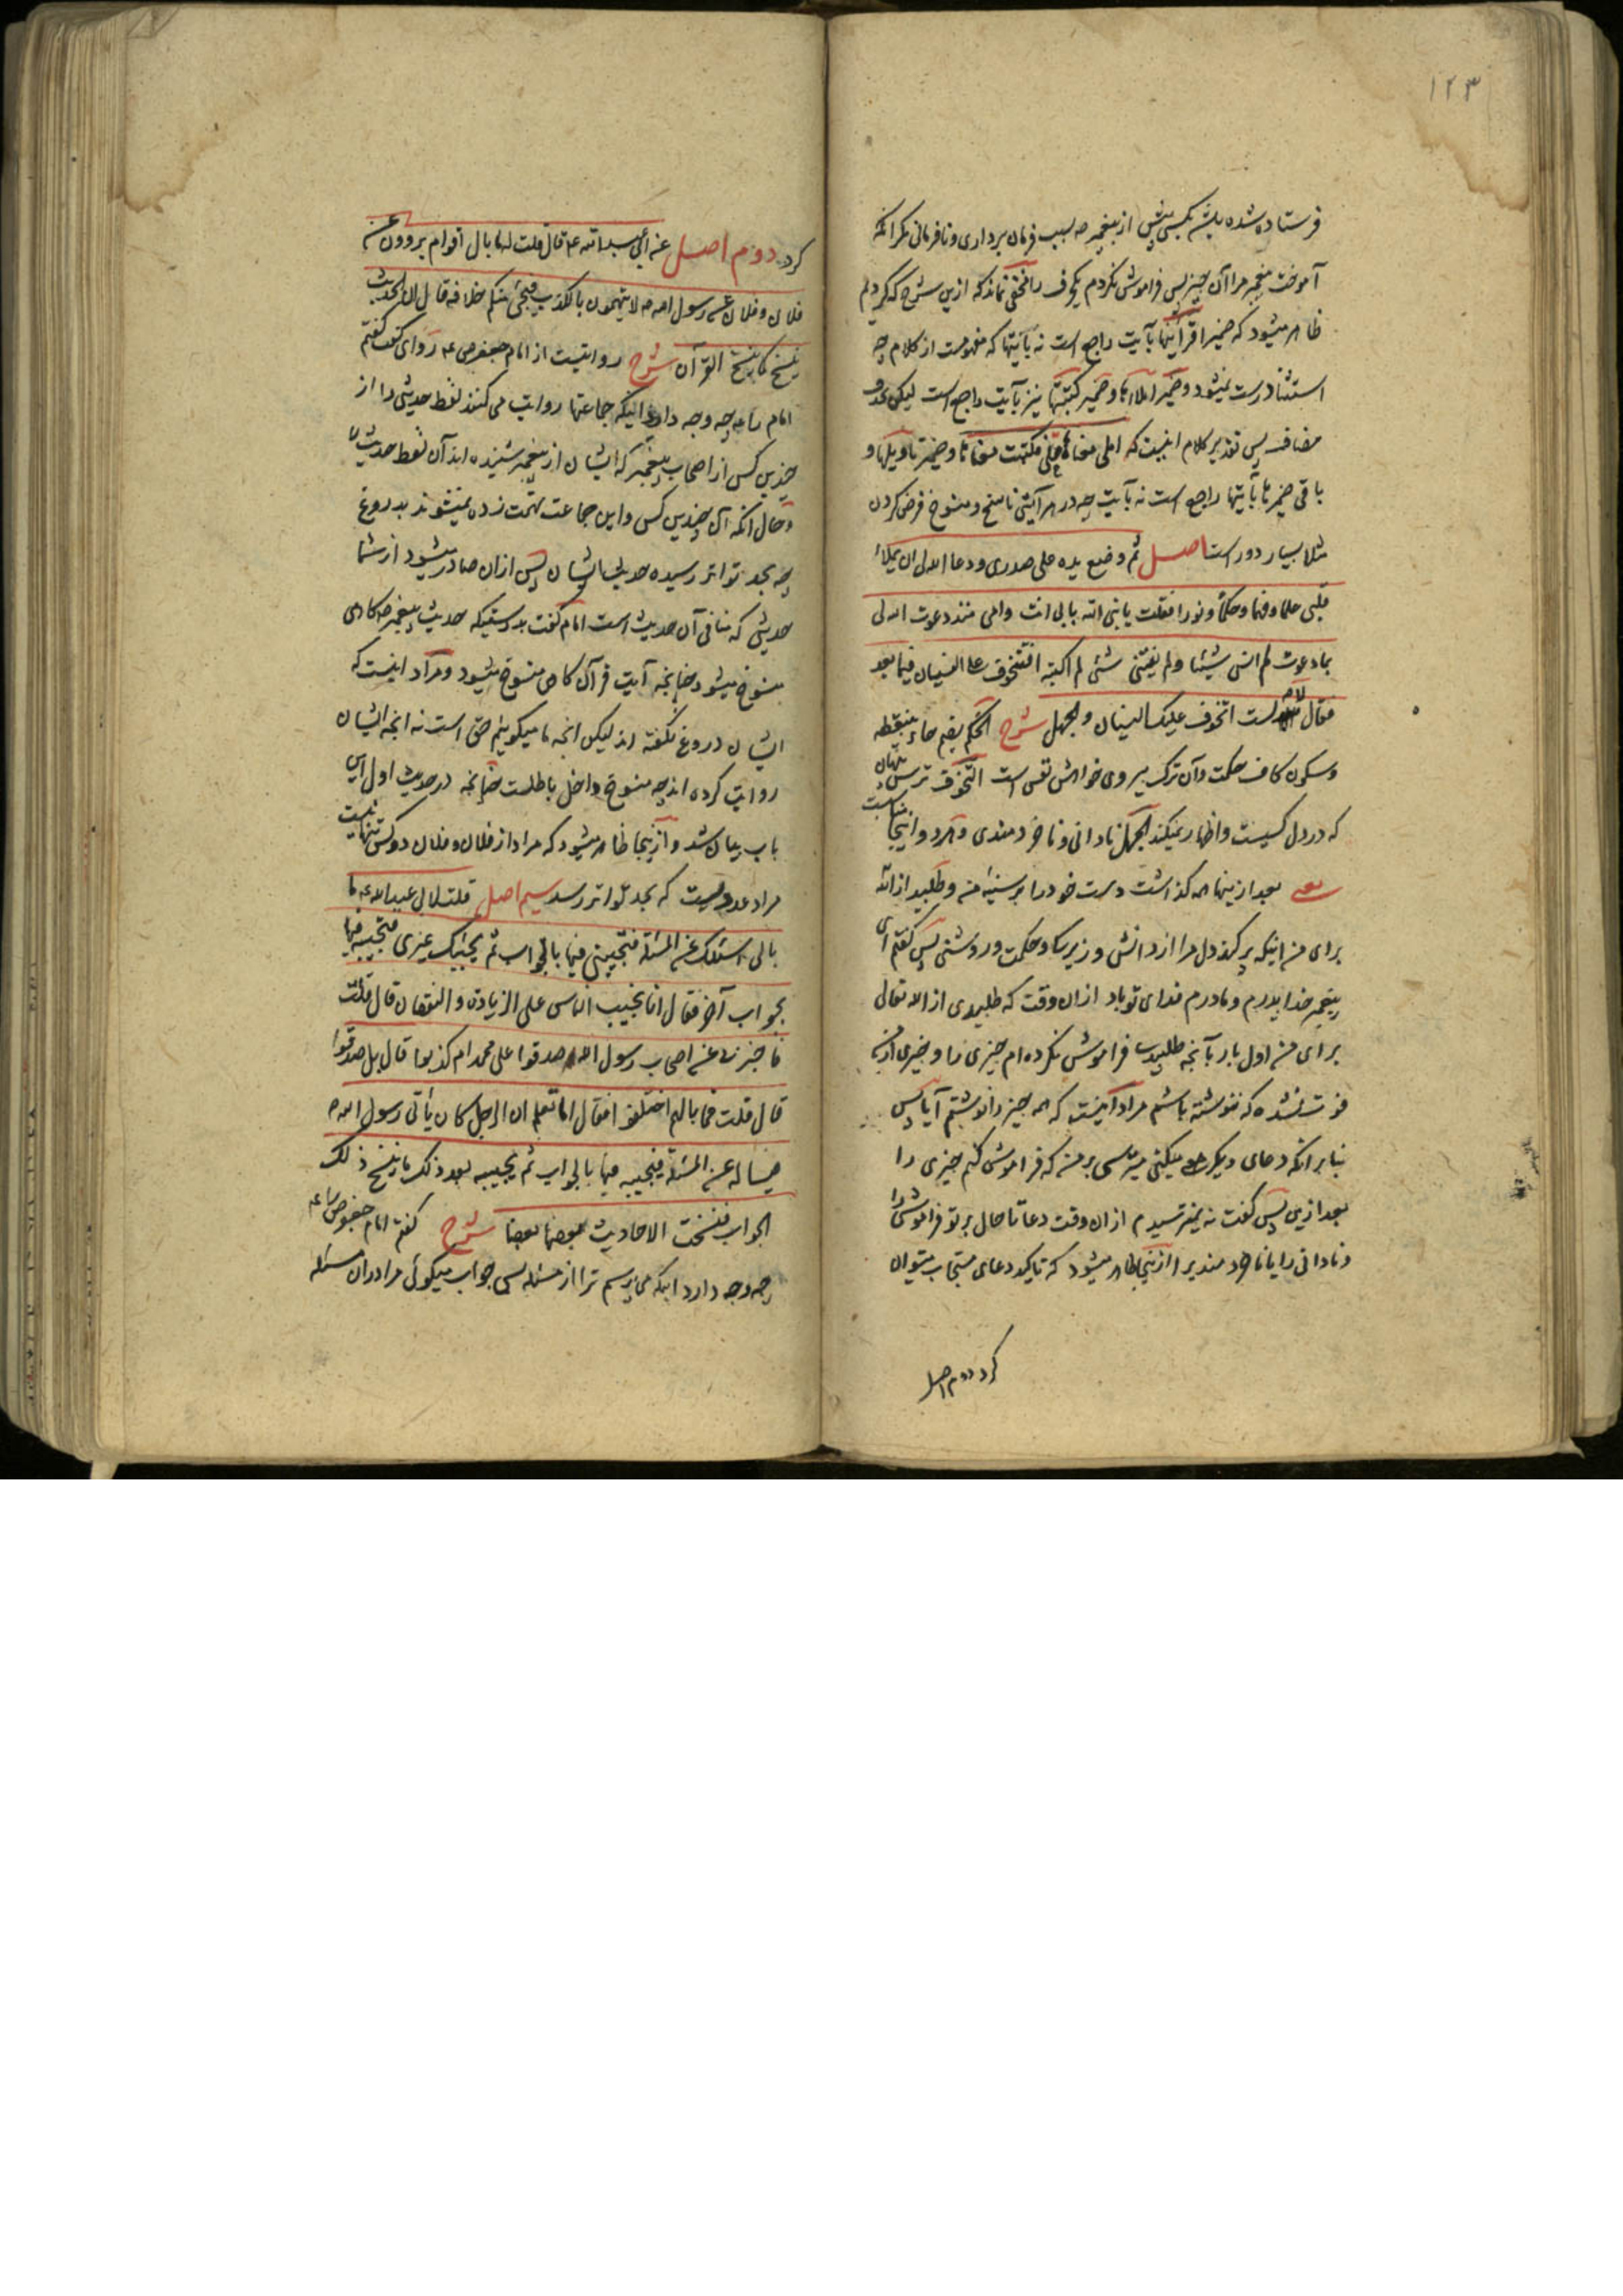 ١٢٣
فرستاده شده باشد بکسی پیش از پیغمبر صه بسبب فرمان برداری و نافرمانی مکر انکه
آموخت پیغمبر مرا آن چیز پس فراموش نکردم یکحرف را مخفی نماند که ازین شرح که کردیم
ظاهر میشود که ضمیر اقرأنیها بآیت راجع است نه بآیتها که مفهومست از کلام چه
استثنا درست نمیشود و ضمیر املاها و ضمیر کتبتها نیز بآیت راجع است لیکن بحذف
مضاف پس تقدیر کلام اینست که املی معناها علی فکتبت معناها و ضمیر تاویلها و
باقی ضمیرها بآیتها راجع است نه بآیت چه در هر آیتی ناسخ و منسوخ فرض کردن
مثلا بسیار دورست اصل ثم وضع یده علی صدری و دعا الله لی ان یملأ
قلبی علما و فهما و حکما و نورا فقلت یا نبی الله بابی انت و امی منذ دعوت الله لی
بما دعوت لم انس شیئا و لم یفتنی شئ لم اکتبه افتتخوف علی النسیان فیما بعد
فقال لا لست اتخوف علیک النسیان و الجهل شرح الحکم بضم حاء بینقطه
و سکون کاف حکمت و آن ترک پیروی خواهش نفس است التخوف ترس پنهان
که در دل کسیست و اظهار نمیکند الجهل نادانی و ناخردمندی و هر دو اینجا مناسبست
یعنی بعد از ینها همه گذاشت دست خود را بر سینه من و طلبید از الله
برای من اینکه پر کند دل مرا از دانش و زیرکی و حکمت و روشنی پس گفتم ای
پیغمبر خدا پدرم و مادرم فدای تو باد ازان وقت که طلبیدی از الله تعالی
برای من اول بار بآنچه طلبیدی فراموش نکرده ام چیزی را و چیزی از من
فوت نشده که ننوشته باشم مراد اینست که همه چیز را نوشتم آیا پس
بنابر انکه دعای دیگر میکنی میترسی بر من که فراموش کنم چیزی را
بعد ازین پس گفت نه نمیترسم ازان وقت دعا تا حال بر تو فراموشی را
و نادانی را یا ناخردمندی را ازینجا ظاهر میشود که تاکید دعای مستجاب میتوان
کرد دوم اصل
کرد دوم اصل عن ابی عبدالله عه قال قلت له ما بال اقوام یروون عن
فلان و فلان عن رسول الله صه لا یتهمون بالکذب فیجئ منکم خلافه قال ان الحدیث
ینسخ کما ینسخ القرآن شرح روایتست از امام جعفر صع راوی گفت گفتم
امام را عه چه وجه دارد اینکه جماعتها روایت می کنند لفظ حدیثی را از
چندین کس از اصحاب پیغمبر که ایشان از پیغمبر شنیده اند آن لفظ حدیث را
و حال انکه آن چندین کس و این جماعت تهمت زده نمیشوند بدروغ
چه بحد تواتر رسیده حدیث ایشان پس ازان صادر میشود از شما
حدیثی که منافی آن حدیث است امام گفت بدرستیکه حدیث پیغمبر صه گاهی
منسوخ میشود چنانچه آیت قرآن گاهی منسوخ میشود و مراد اینست که
ایشان دروغ نگفته اند لیکن انچه ما میگوئیم حق است نه انچه ایشان
روایت کرده اند چه منسوخ داخل باطلست چنانچه در حدیث اول این
باب بیان شد و ازینجا ظاهر میشود که مراد از فلان و فلان دو کس تنها نیست
مراد عددیست که بحد تواتر رسد سیم اصل قلت لابی عبدالله عه ما
بالی اسئلک عن المسئلة فتجیبنی فیها بالجواب ثم یجیئک غیری فتجیبه فیها
بجواب آخر فقال انا نجیب الناس علی الزیادة و النقصان قال قلت
فاخبرنی عن اصحاب رسول الله صدقوا علی محمد ام کذبوا قال بل صدقوا
قال قلت فما بالهم اختلفوا فقال اما تعلم ان الرجل کان یأتی رسول الله صه
فیساله عن المسئلة فیجیبه فیها بالجواب ثم یجیبه بعد ذلک ما ینسخ ذلک
الجواب فنسخت الاحادیث بعضها بعضا شرح گفتم امام جعفر صه را عه
چه وجه دارد اینکه می پرسم ترا از مسئله پس جواب میگوئی مرا دران مسئله